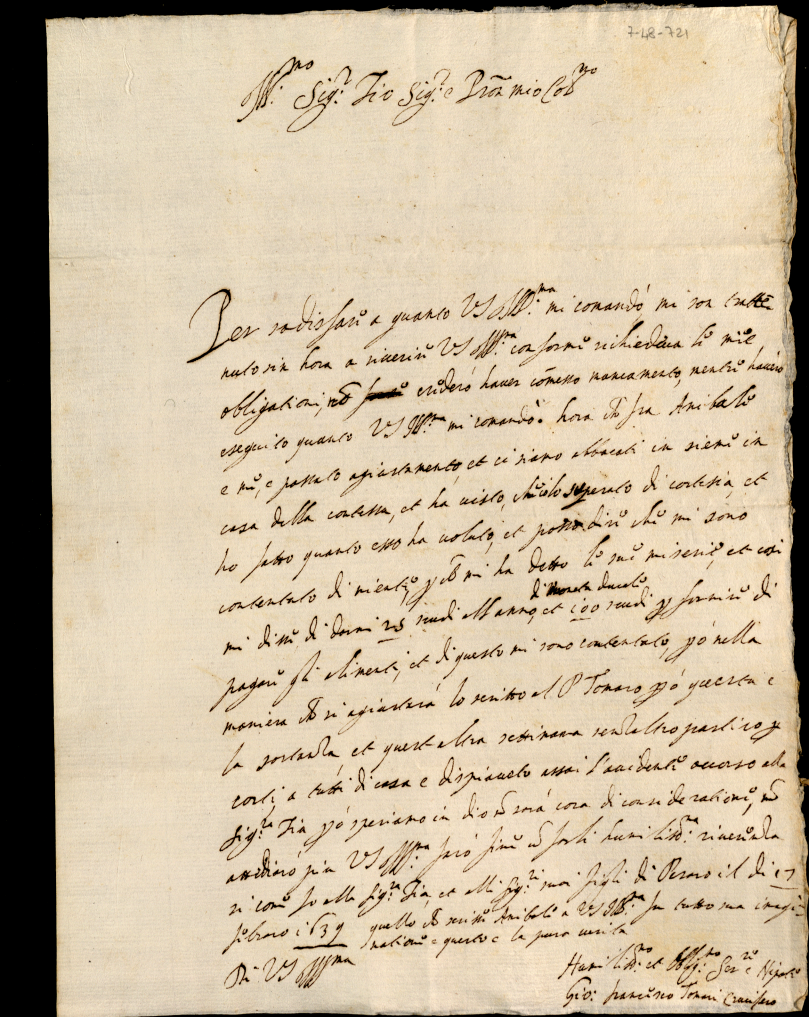 7-48-721
Ill.mo Sig.r Zio Sig.r e Pron mio Col.mo
Per sodisfare a quanto VS Ill.ma mi comandò, mi son tratte
nuto sin hora a riverire VS Ill.ma conforme richiedeva le mie
obligationi, nō crederò haver cōmesso mancamento, mentre haverò
eseguito quanto VS Ill.ma mi comandò. hora che fra Anibale
e me, è passato agiustamento, et ci siamo abbocati in sieme in
casa della contessa, et ha visto, superato di cortesia, et
ho fatto quanto esso ha voluto, et posso dire che mi sono
contentato di niente, mi ha detto le sue miserie, et così
di moneta ducale
mi disse di darmi 25 scudi all'anno, et 100 scudi p fornire di
pagare gli alimenti, et di questo mi sono contentato, pò nella
maniera che si agiusterà lo scritto al P Tomaro pò questa è
la sostanza, et quest altra settimana senz altro partirò p
costì, a tutti di casa è dispiaciuto assai l'accidente occorso alla
Sig.ra Zia pò speriamo in dio nō sarà cosa di consideratione, nō
attediarò più VS Ill.ma farò fine cō farli humiliss.ma riverenza
si come fo alla Sig.ra Zia, et alli Sig.ri suoi figli di Pesaro il dì 17
febraro 1639 quello che scrisse Anibale a VS Ill.ma fu tutto sua imagi-
natione e questo è la pura verità
Di VS Ill.ma
Humiliss.mo et Oblig.mo Ser.re e Nipote
Gio: Francesco Tomasi